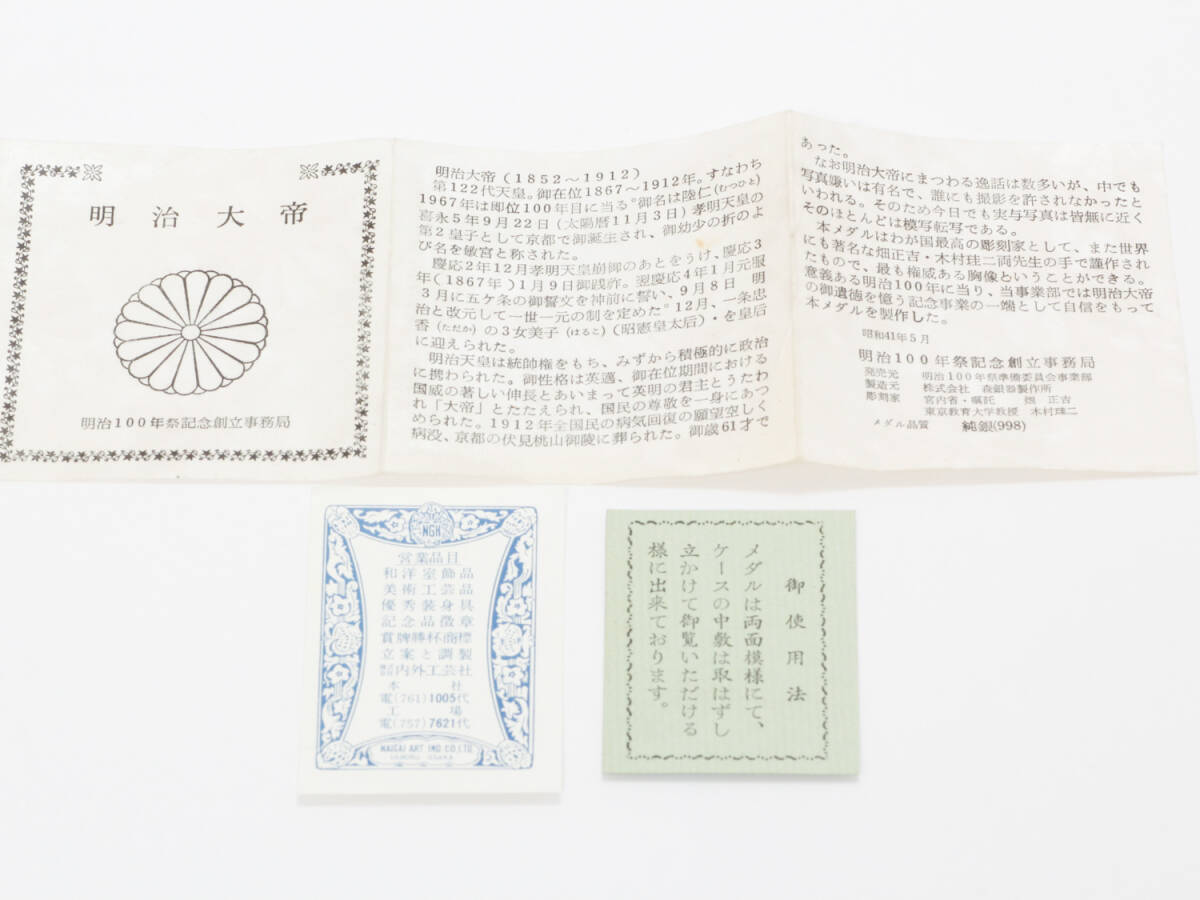 明治大帝
明治100年祭記念創立事務局
明治大帝(1852～1912)
第122代天皇。御在位1867～1912年。すなわち
1967年は即位100年目に当る。御名は陸仁(むつひと)
喜永5年9月22日(太陽暦11月3日)孝明天皇の
第2皇子として京都で御誕生され、御幼少の折のよ
び名を敏宮と称された。
慶応2年12月孝明天皇崩御のあとをうけ、慶応3
年(1867年)1月9日御践祚。翌慶応4年1月元服
3月に五ケ条の御誓文を神前に誓い、9月8日 明
治と改元して一世一元の制を定めた。12月、一条忠
香(ただか)の3女美子(はるこ)(昭憲皇太后)・を皇后
に迎えられた。
明治天皇は統帥権をもち、みずから積極的に政治
に携わられた。御性格は英邁、御在位期間における
国威の著しい伸長とあいまって英明の君主とうたわ
れ「大帝」とたたえられ、国民の尊敬を一身にあつ
められた。1912年全国民の病気回復の願望空しく
病没、京都の伏見桃山御陵に葬られた。御歳61才で
あった。
なお明治大帝にまつわる逸話は数多いが、中でも
写真嫌いは有名で、誰にも撮影を許されなかったと
いわれる。そのため今日でも実与写真は皆無に近く
そのほとんどは模写転写である。
本メダルはわが国最高の彫刻家として、また世界
にも著名な畑正吉・木村珪二両先生の手で謹作され
たもので、最も権威ある胸像ということができる。
意義ある明治100年に当り、当事業部では明治大帝
の御遺徳を憶う記念事業の一端として自信をもって
本メダルを製作した。
昭和41年5月
明治100年祭記念創立事務局
発売元 明治100年祭準備委員会事業部
製造元 株式会社 森銀器製作所
彫刻家 宮内省・嘱託 畑正吉
東京教育大学教授 木村珪二
メダル品質 純銀(998)
NGK
営業品目
和洋室飾品
美術工芸品
優秀装身具
記念品徽章
賞牌勝杯商標
立案と調製
株式会社内外工芸社
本社
電(761)1005代
工場
電(757)7621代
NAIGAI ART IND CO.LTD
OSAKA
御使用法
メダルは両面模様にて、
ケースの中敷は取はずし
立かけて御覧いただける
様に出来ております。